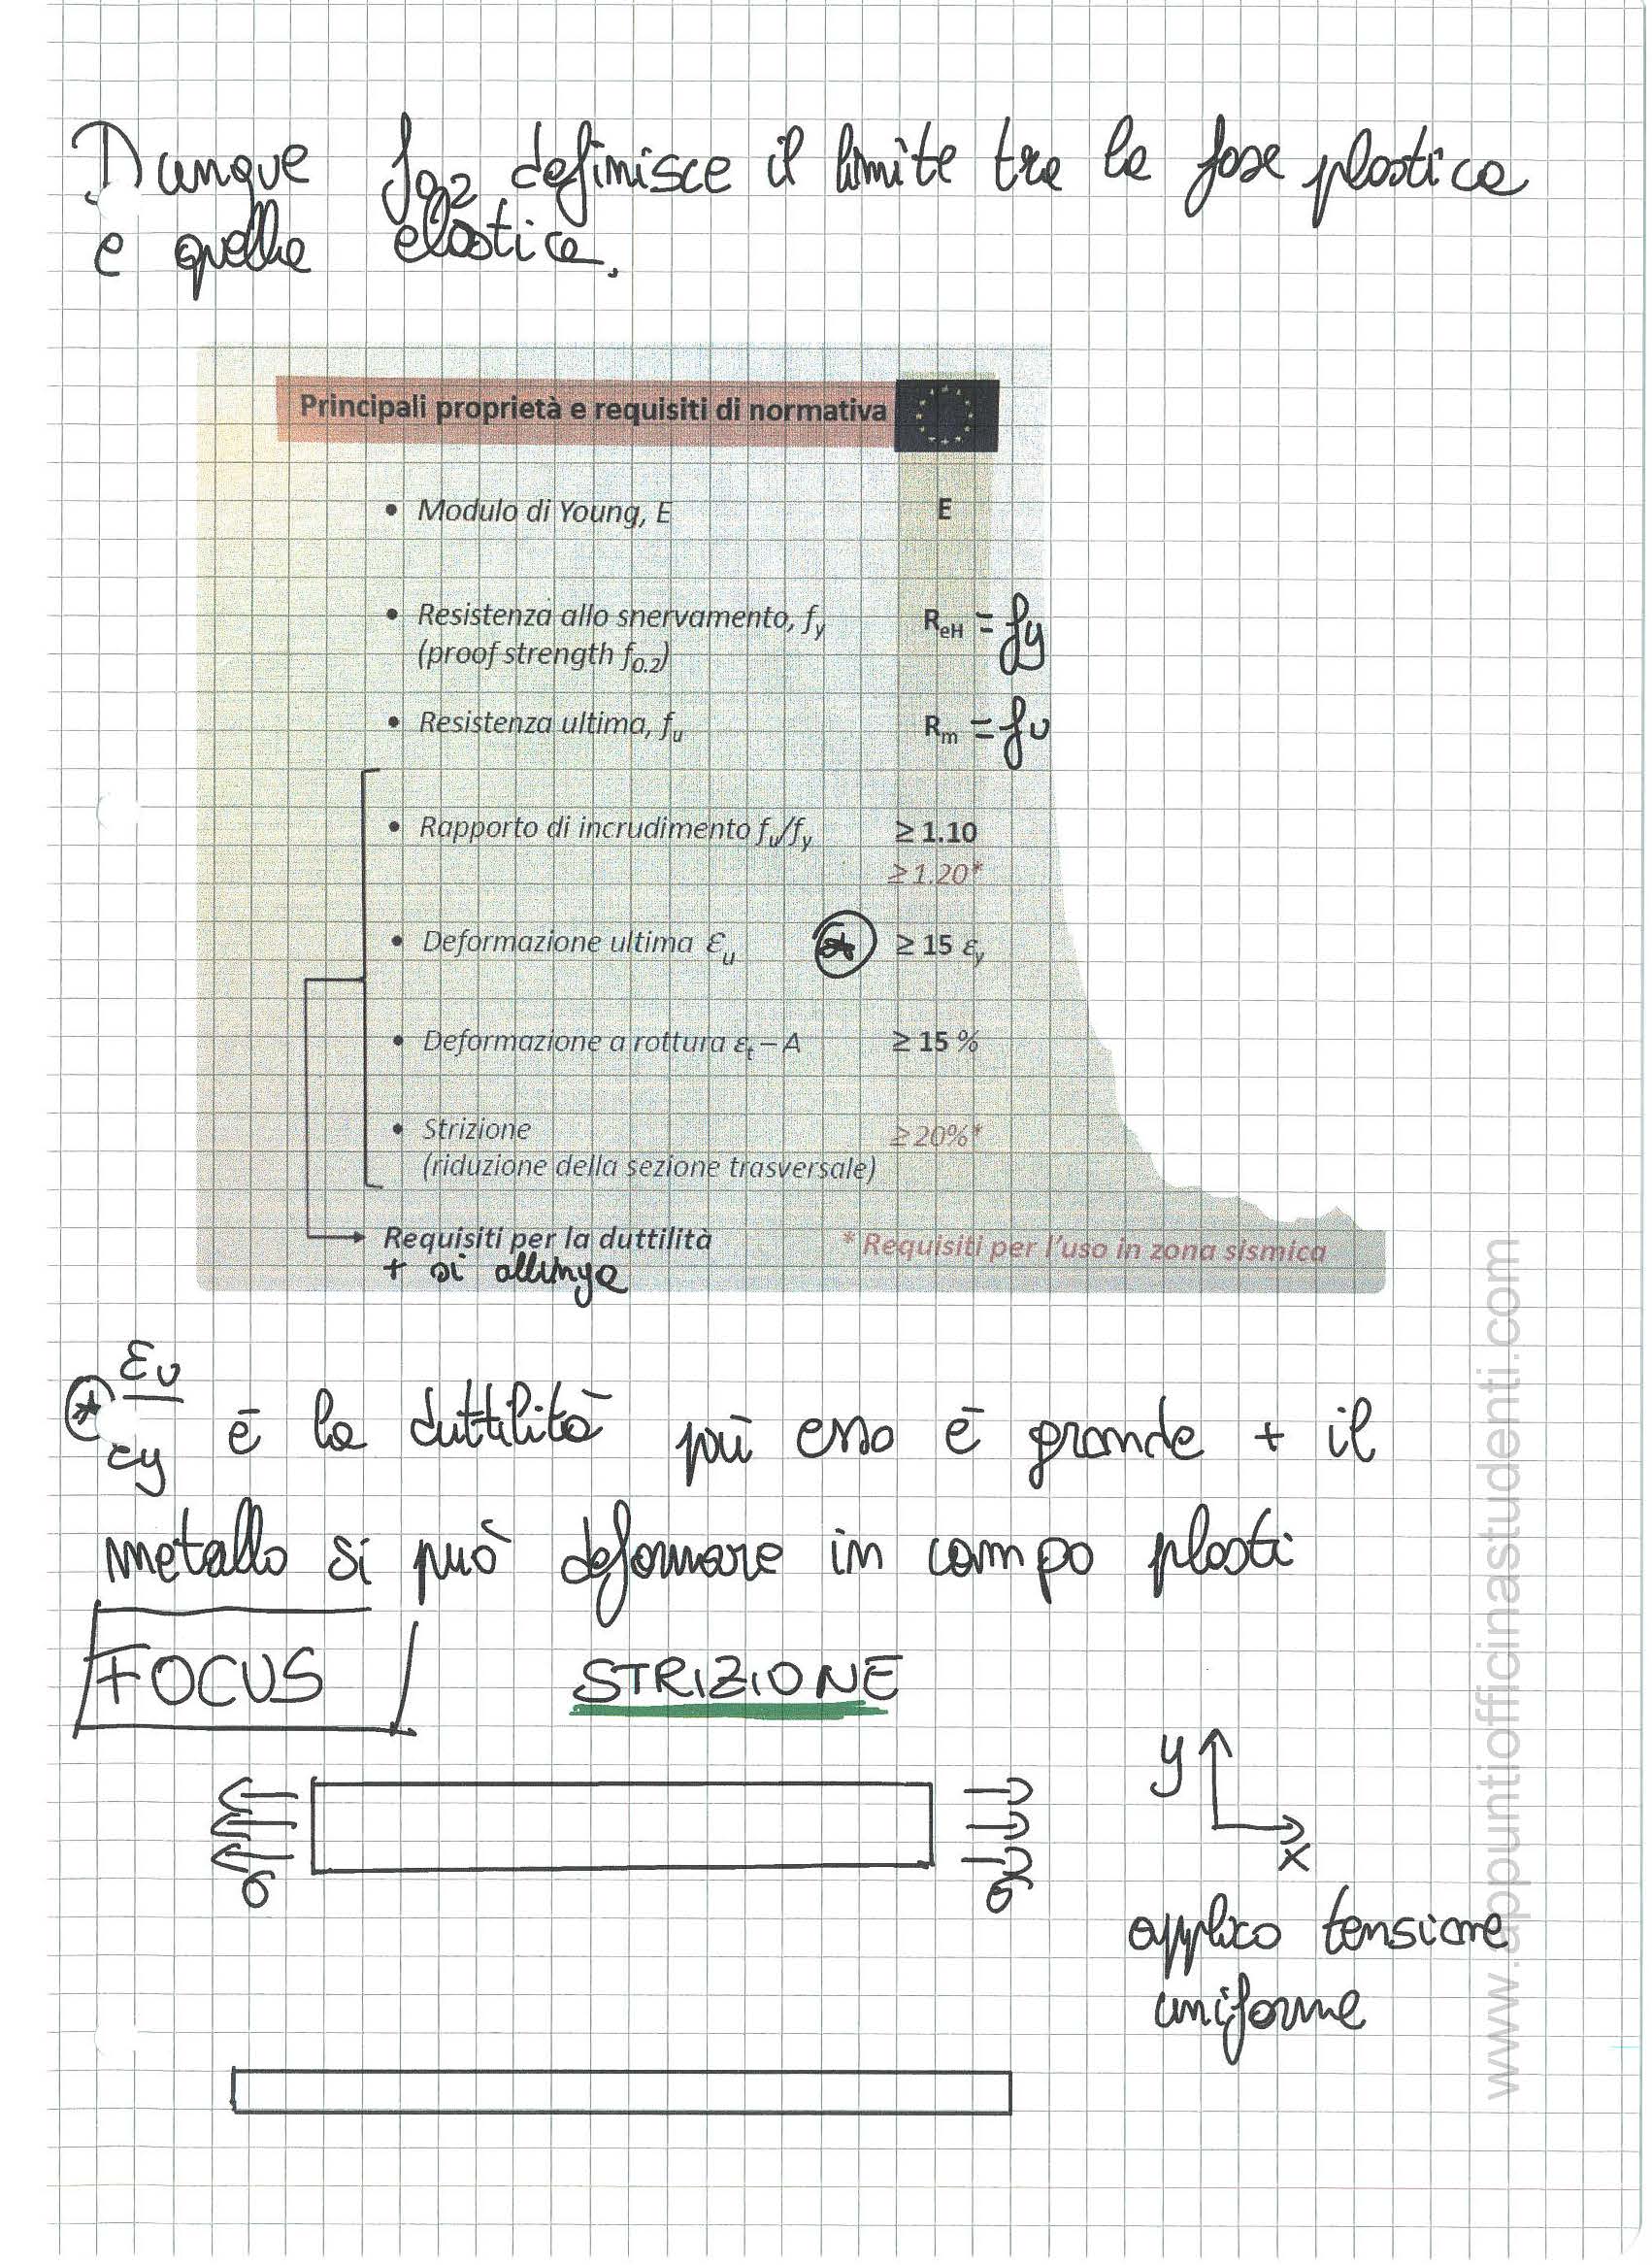 Dunque f0,2 definisce il limite tra la fase plastica
e quella elastica.
Principali proprietà e requisiti di normativa
• Modulo di Young, E E
• Resistenza allo snervamento, fy ReH = fy
(proof strength f0.2)
• Resistenza ultima, fu Rm = fu
• Rapporto di incrudimento fu/fy ≥ 1.10
≥ 1.20*
• Deformazione ultima εu * ≥ 15 εy
• Deformazione a rottura εt – A ≥ 15 %
• Strizione ≥ 20%*
(riduzione della sezione trasversale)
Requisiti per la duttilità * Requisiti per l'uso in zona sismica
+ si allunga
* εu/εy è la duttilità più esso è grande + il
metallo si può deformare in campo plasti
FOCUS STRIZIONE
y
x
σ σ
applico tensione
uniforme
www.appuntiofficinastudenti.com